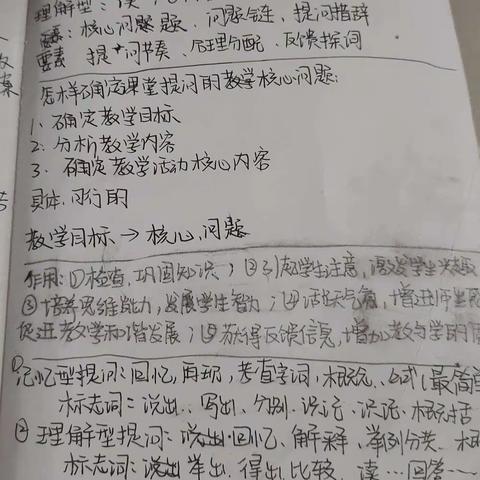 理解型：读
要素：核心问题题、问题链、提问措辞
要素 提问节奏、合理分配、反馈探问
怎样确定课堂提问的教学核心问题：
1、确定教学目标
2、分析教学内容
3、确定教学活动核心内容
具体、可行的
教学目标→核心问题
作用：①检查，巩固知识；②引起学生注意，激发学生兴趣
③培养思维能力，发展学生智力；④活跃气氛，增进师生
促进教学和谐发展；⑤获得反馈信息，增加教与学的
①记忆型提问：回忆，再现，考查字词、概念、公式（最简单
标志词：说出、写出、分别、识记、识记、概括
②理解型提问：说出、回忆、解释、举例分类、概
标志词：说出 举出、得出、比较、读…回答……